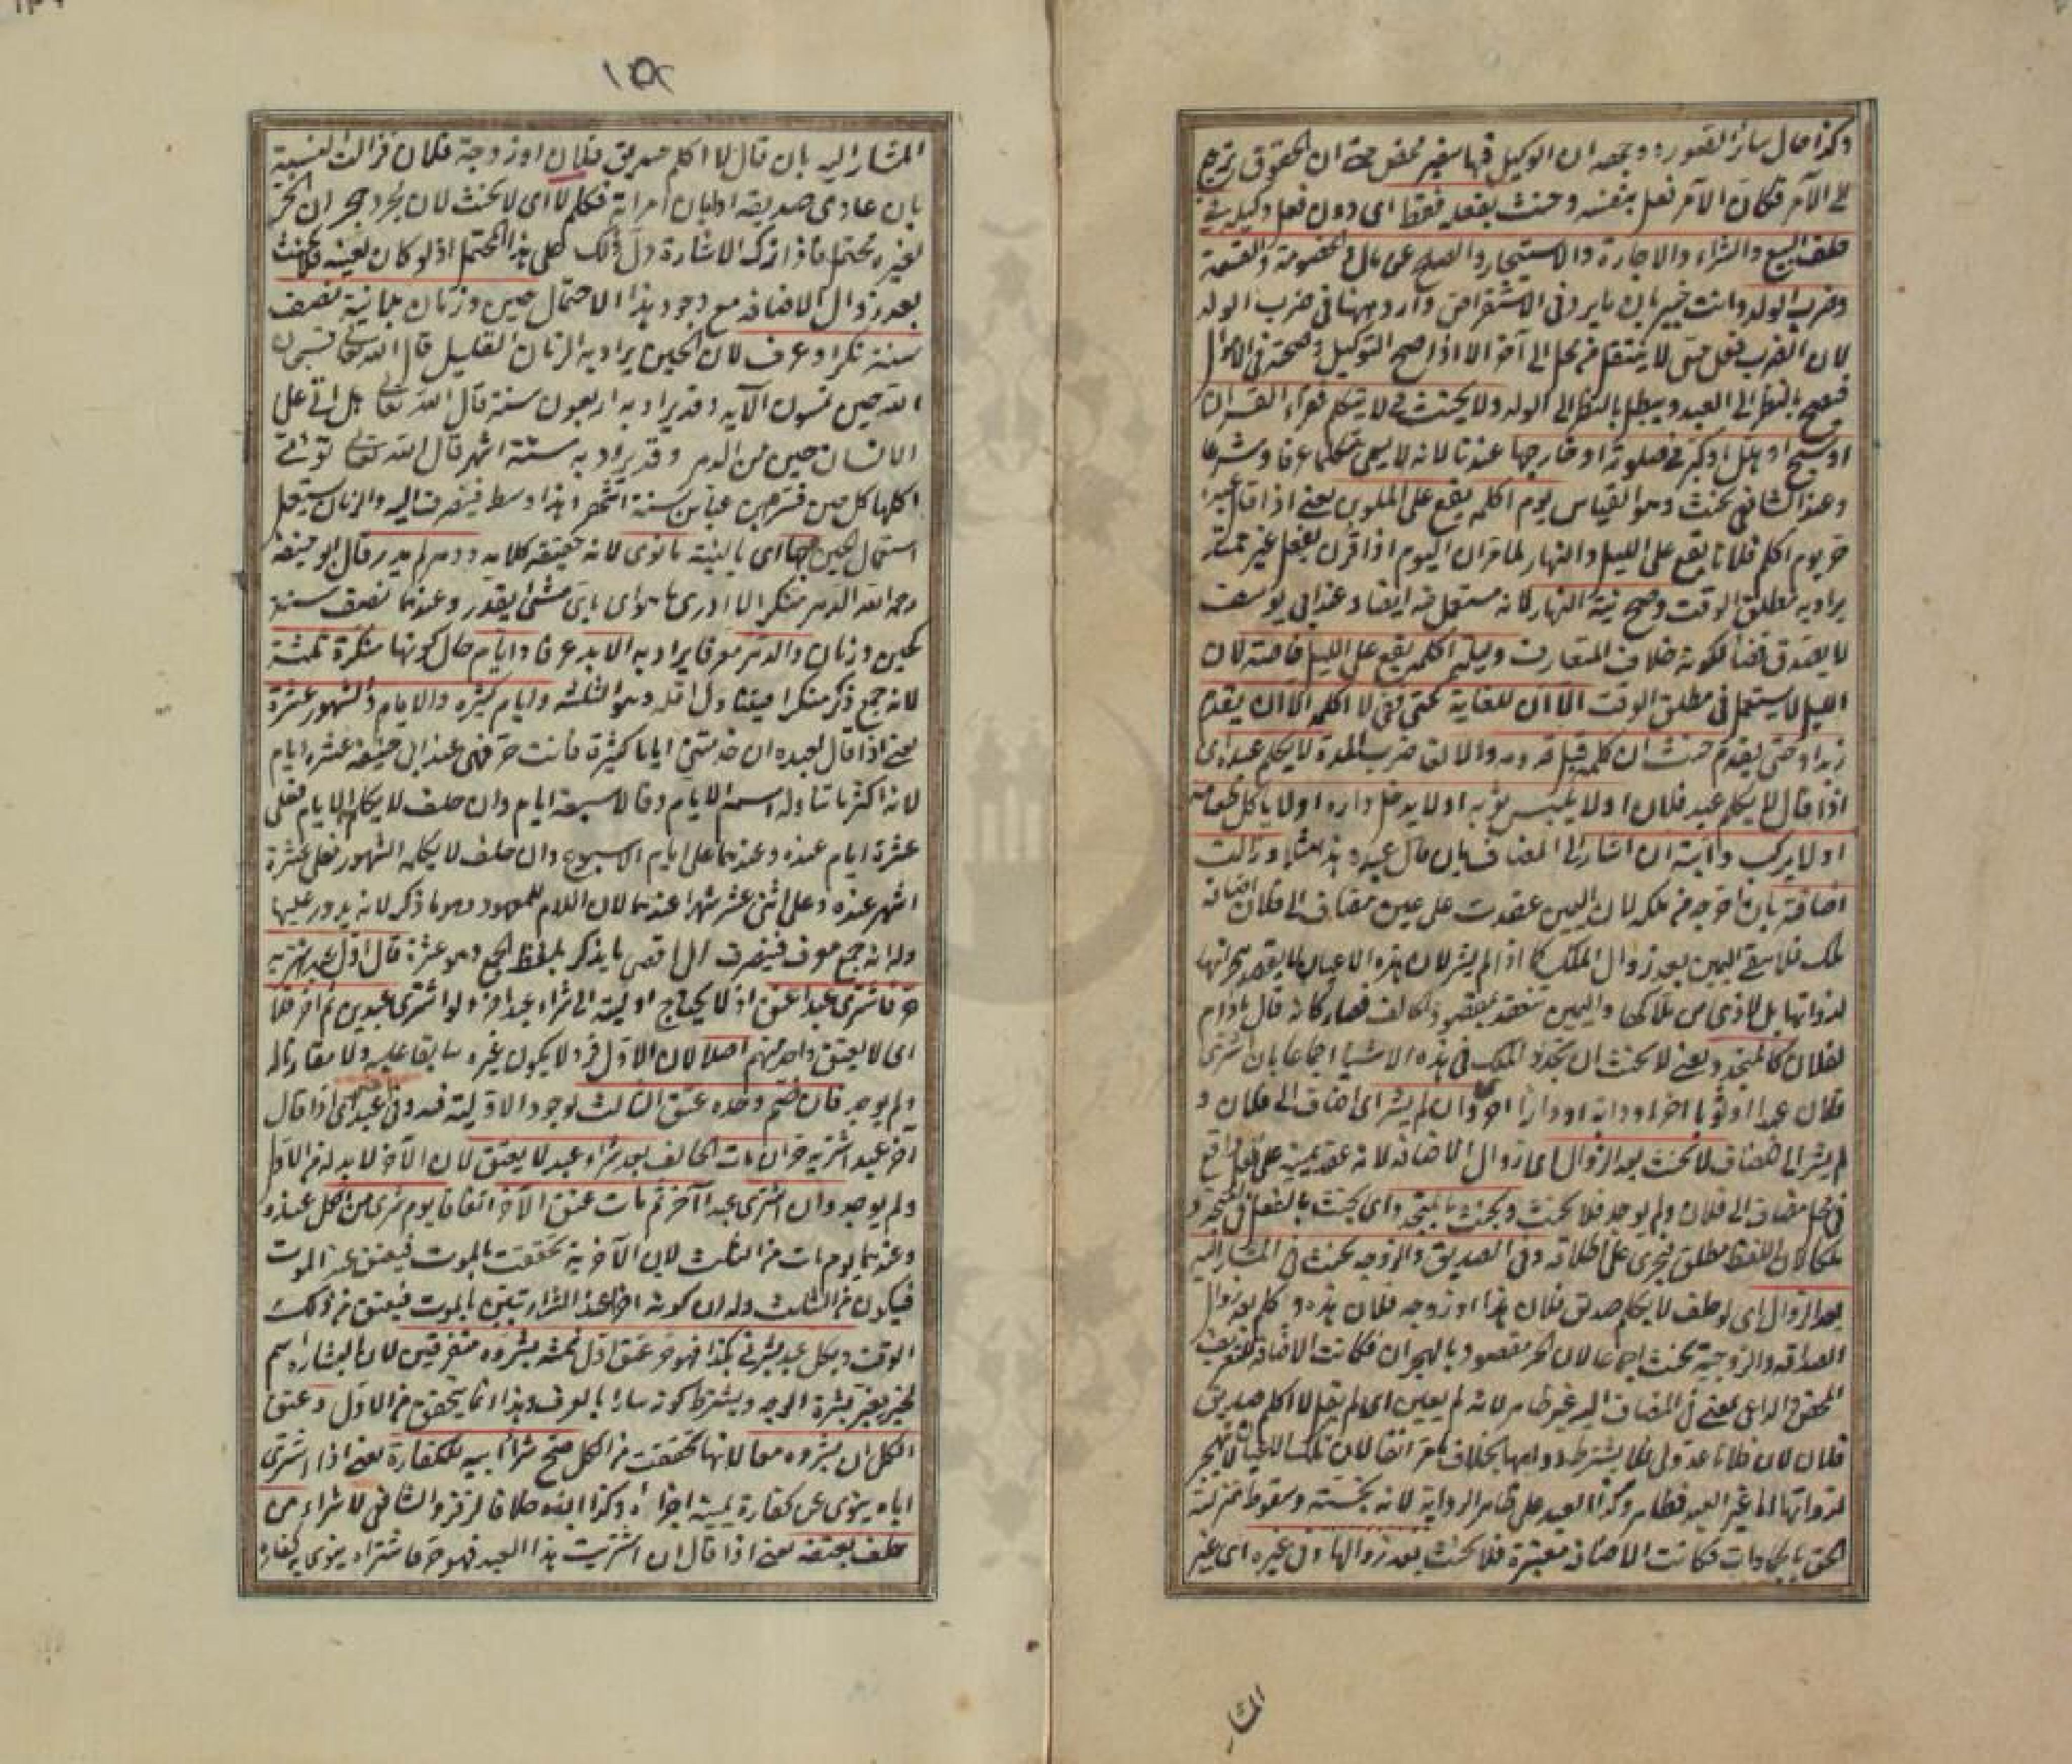 وكذا حال سائر الصور ووجهه ان الوكيل فيها سفير محض حتى ان الحقوق ترجع
الى الآمر فكان الآمر فعل بنفسه وحنث بفعله فقط اى دون فعل وكيله فى
حلف البيع والشراء والاجارة والاستيجار والصلح عن مال والخصومة والقسمة
وضرب الولد وانت خبير بان ما يرد فى الاستقراض وارد ههنا فى ضرب الولد
لان الضرب فعل حسى لا ينتقل من محل الى آخر الا اذا صح التوكيل وصحته فى الاموال
فيصح بالنظر الى العبد ويبطل بالنظر الى الولد ولا يحنث فى لا يتكلم فقرأ القرآن
او سبح او هلل او كبر فى صلوته او خارجها عندنا لانه لا يسمى متكلما عرفا وشرعا
وعند الشافعى يحنث وهو القياس يوم اكلمه يقع على الملوين يعنى اذا قال عبده
حر يوم اكلم فلانا يقع على الليل والنهار لما مر ان اليوم اذا قرن بفعل غير ممتد
يراد به مطلق الوقت وصح نية النهار لانه مستعمل فيه ايضا وعند ابى يوسف
لا يصدق قضاء لكونه خلاف المتعارف وليلة اكلمه يقع على الليل خاصة لان
الليل لا يستعمل فى مطلق الوقت الا ان للغاية كحتى ففى لا اكلمه الا ان يقدم
زيد او حتى يقدم حنث ان كلمه قبل قدومه والا لا لضرب المدة لا يكلم عبده اى
اذا قال لا يكلم عبد فلان او لا يلبس ثوبه او لا يدخل داره او لا ياكل طعامه
او لا يركب دابته ان اشار الى المضاف بان قال عبده هذا مثلا وزالت
اضافته بان اخرجه من ملكه لان اليمين عقدت على عين مضاف الى فلان اضافة
ملك فلا يبقى اليمين بعد زوال الملك كما اذا لم يشر لان هذه الاعيان لا يقصد هجرانها
لذواتها بل لاذى من ملاكها واليمين تنعقد بمقصود الحالف فصار كانه قال ما دام
لفلان كالمتجدد يعنى لا يحنث ان تجدد الملك فى هذه الاشيا اجماعا بان اشترى
فلان عبدا او ثوبا آخر او دابة او دارا اخرى وان لم يشر اى اضاف الى فلان و
لم يشر الى المضاف لا يحنث بعد الزوال اى زوال الاضافة لانه عقد يمينه على فعل واقع
فى محل مضاف الى فلان ولم يوجد فلا يحنث ويحنث بالمتجدد اى يحنث بالفعل فى المتجدد
ملكا لان اللفظ مطلق فيجرى على اطلاقه وفى الصديق والزوجة يحنث فى المشار اليه
بعد الزوال اى لو حلف لا يكلم صديق فلان هذا او زوجة فلان هذه وكلم بعد زوال
الصداقة والزوجية يحنث اجماعا لان الحر مقصود بالهجران فكانت الاضافة للتعريف
المحض والداعى لمعنى فى المضاف اليه غير ظاهر لانه لم يعين اى لم يقل لا اكلم صديق
فلان لان فلانا عدو لى فلا يشترط دوامها بخلاف ما مر آنفا لان تلك الاعيان لا تهجر
لذواتها اما غير العبد فظاهر وكذا العبد على ظاهر الرواية لانه لخسته وسقوط منزلته
الحق بالجمادات فكانت الاضافة معتبرة فلا يحنث بعد زوالها وفى غيره اى غير
المشار
١٥٨
المشار اليه بان قال لا اكلم صديق فلان او زوجة فلان فزالت النسبة
بان عادى صديقه او ابان امراته فكلم لا اى لا يحنث لان مجرد هجران الحر
لغيره محتمل فاذا ترك الاشارة دل ذلك على هذا المحتمل اذ لو كان لعينه فلا يحنث
بعد زوال الاضافة مع وجود هذا الاحتمال حين وزمان بلا نية نصف
سنة نكرا وعرف لان الحين يراد به الزمان القليل قال الله تعالى فسبحان
الله حين تمسون الآية وقد يراد به اربعون سنة قال الله تعالى هل اتى على
الانسان حين من الدهر وقد يراد به ستة اشهر قال الله تعالى تؤتى
اكلها كل حين فسره ابن عباس ستة اشهر وهذا وسط فينصرف اليه والزمان يستعمل
استعمال الحين وبها اى بالنية ما نوى لانه حقيقة كلامه ودهر لم يدر قال ابو حنيفة
رحمه الله الدهر منكرا لا ادرى ما هو اى باى شئ يقدر وعندهما نصف سنة
كحين وزمان والدهر معرفا يراد به الابد عرفا وايام حال كونها منكرة ثلثة
لانه جمع ذكر منكرا فيتناول اقله وهو الثلثة وايام كثيرة والايام والشهور عشرة
يعنى اذا قال لعبده ان خدمتنى اياما كثيرة فانت حر فهى عند ابى حنيفة عشرة ايام
لانه اكثر ما تناوله اسم الايام وقالا سبعة ايام وان حلف لا يكلم الايام فعلى
عشرة ايام عنده وعندهما على ايام الاسبوع وان حلف لا يكلمه الشهور فعلى عشرة
اشهر عنده وعلى اثنى عشر شهرا عندهما لان اللام للمعهود وهو ما ذكر لانه يدور عليها
وله انه جمع معرف فينصرف الى اقصى ما يذكر بلفظ الجمع وهو عشرة قال اول عبد اشتريه
حر فاشترى عبدا عتق اذ لا يحتاج اوليته الى شراء عبد اخر ولو اشترى عبدين ثم اخر فلا
اى لا يعتق واحد منهم اصلا لان الاول فرد لا يكون غيره سابقا عليه ولا مقارنا له
ولم يوجد فان ضم وحده عتق الثالث لوجود الاولية فيه وفى آخر عبد اى اذا قال
آخر عبد اشتريه حر ان مات الحالف بعد شراء عبد لا يعتق لان الآخر لا بد له من الاول
ولم يوجد وان اشترى عبدا آخر ثم مات عتق الآخر اتفاقا يوم شرى من الكل عنده و
وعندهما يوم مات من الثلث لان الآخرية تحققت بالموت فيعتق عند الموت
فيكون من الثلث وله ان كونه اخرا عند الشراء تبين بالموت فيعتق من ذلك
الوقت وبكل عبد بشرنى بكذا فهو حر عتق اول ثلثة بشروه متفرقين لان البشارة اسم
لخبر يغير بشرة الوجه ويشترط كونه سارا بالعرف وهذا انما يتحقق من الاول وعتق
الكل ان بشروه معا لانها تحققت من الكل صح شراء ابيه للكفارة يعنى اذا اشترى
اباه ينوى عن كفارة يمينه اجزاه وكذا ابنه خلافا لزفر والشافعى لا شراء من
حلف بعتقه يعنى اذا قال ان اشتريت هذا العبد فهو حر فاشتراه ينوى به كفارة